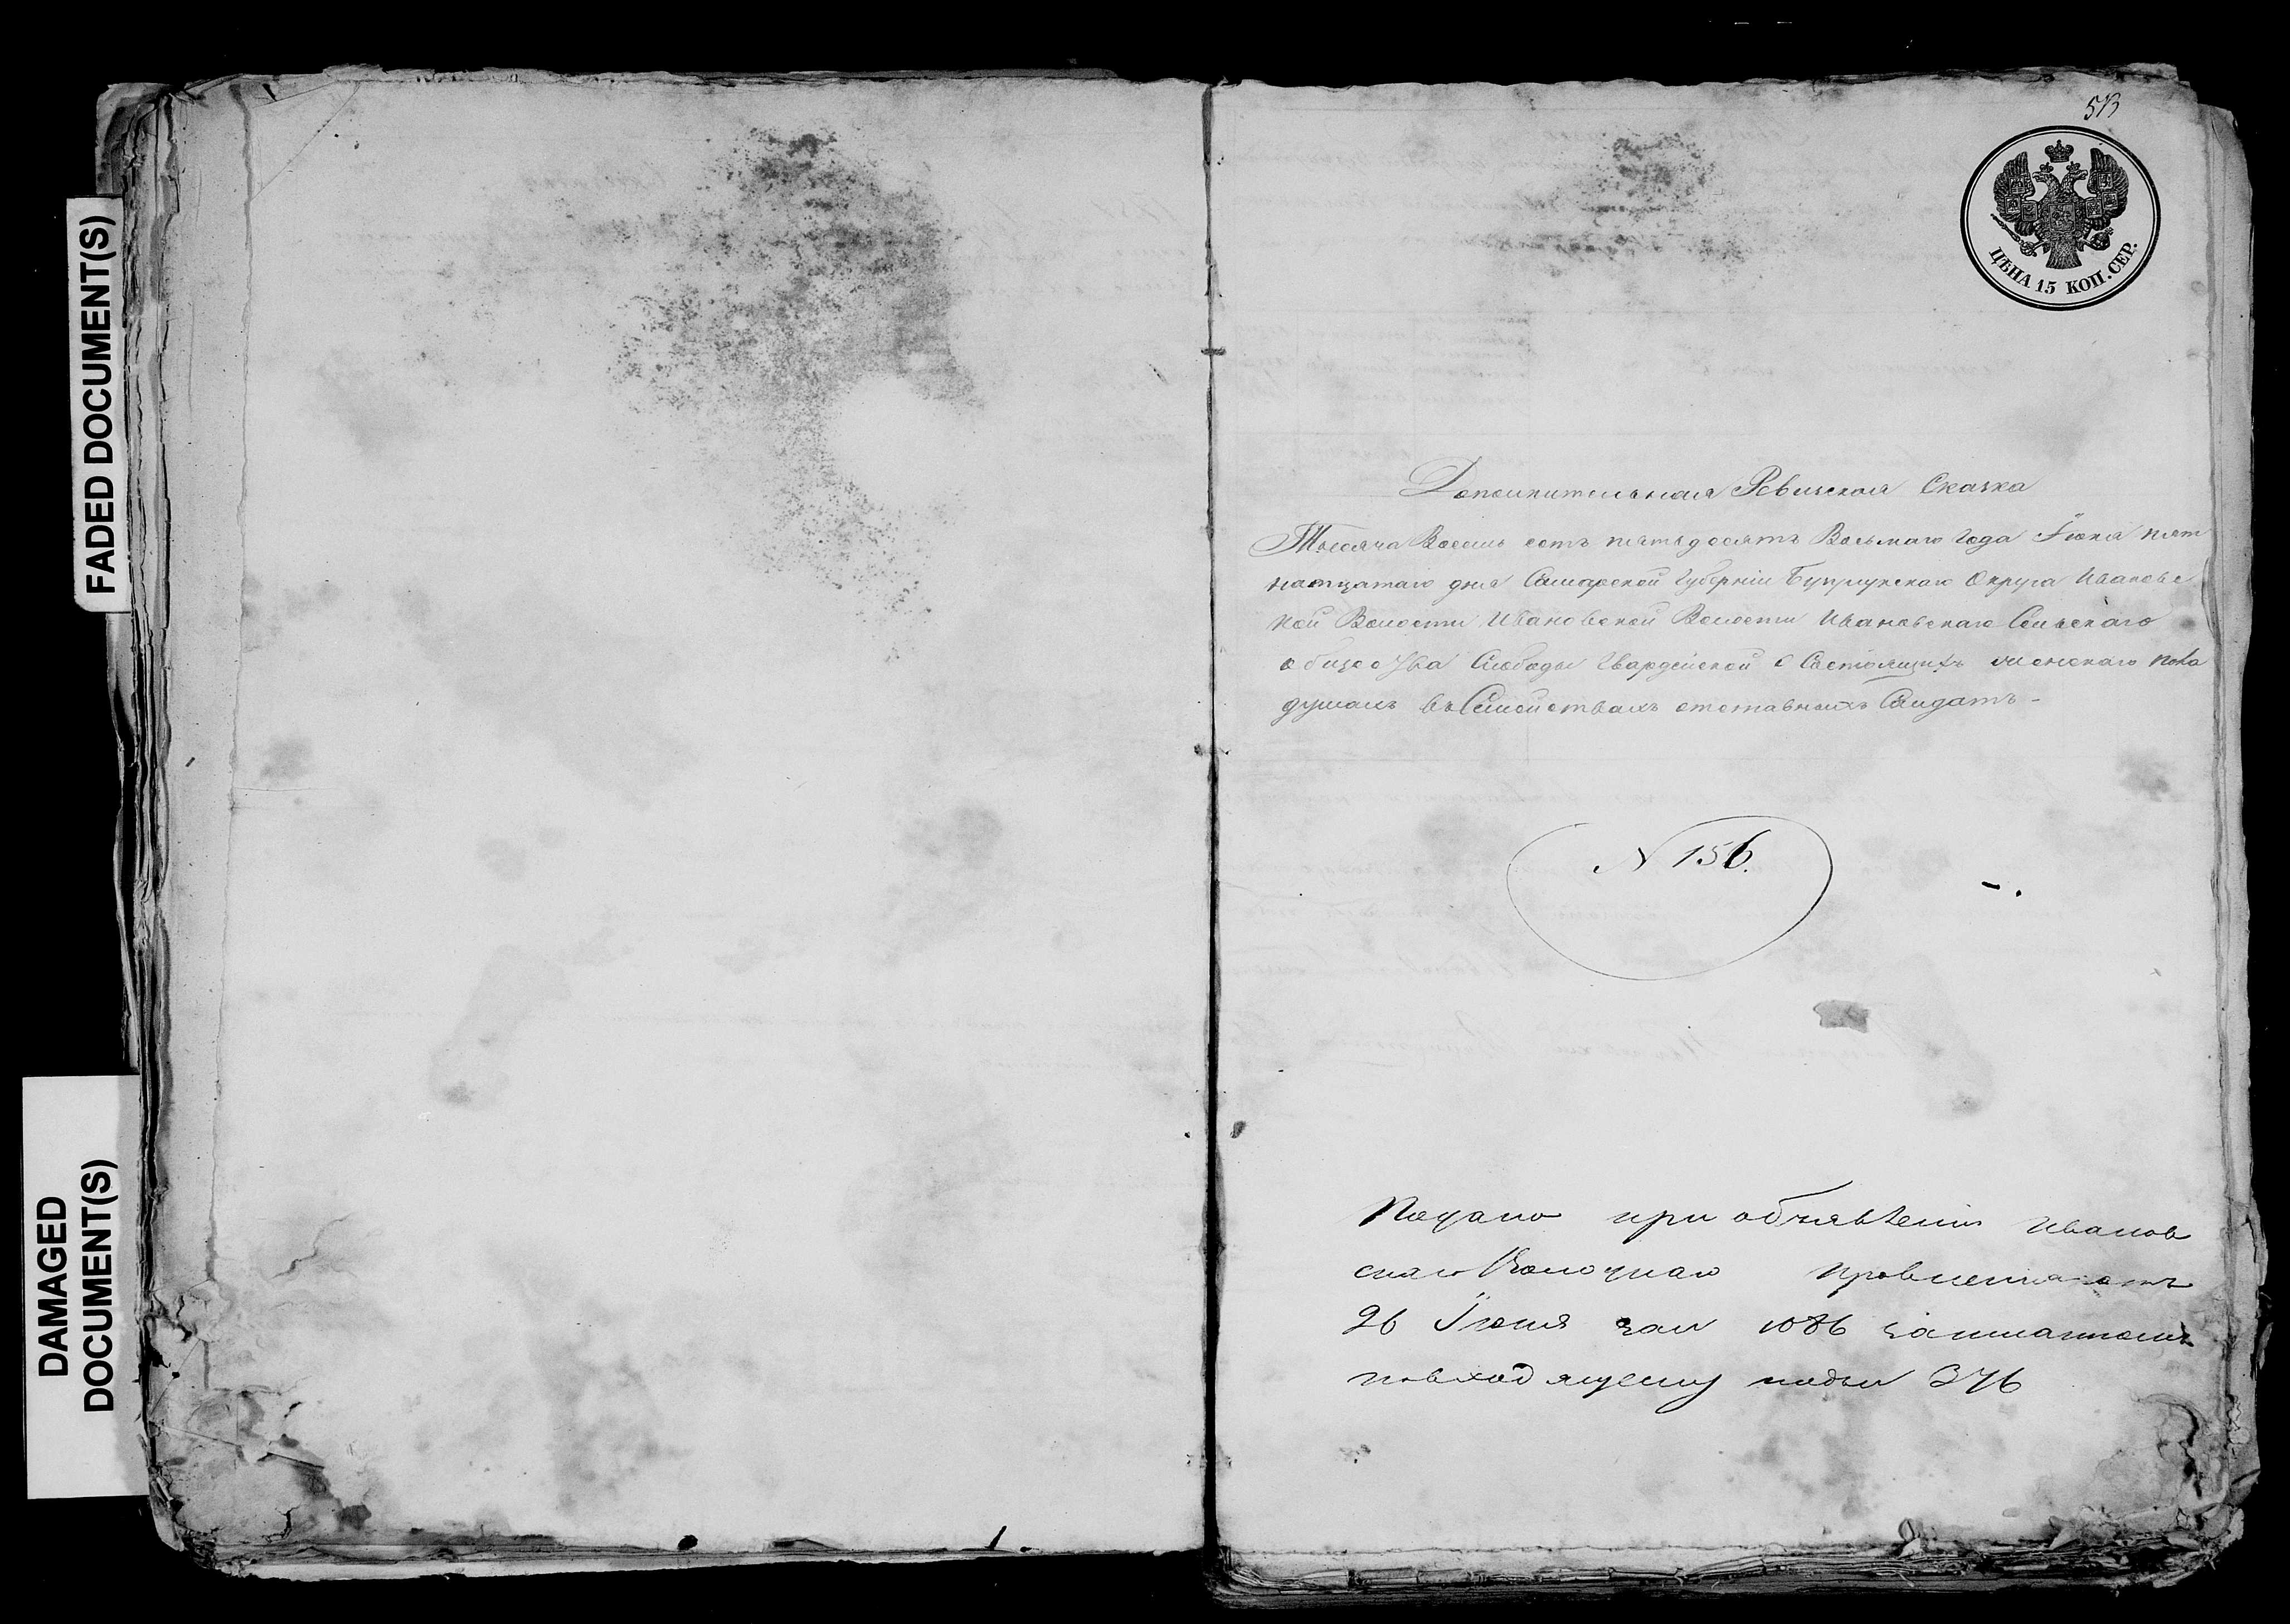 FADED DOCUMENT(S)
DAMAGED
DOCUMENT(S)
513
ЦѢНА 15 КОП. СЕР.
Дополнительная Ревизская Сказка
Тысяча Восемь сотъ пятьдесятъ Восьмаго Года Іюня пят
натцатаго дня Самарской Губерніи Бузулукскаго Округа Ивановс
кой Волости Ивановской Волости Ивановскаго Сельскаго
общества Слободы Гвардейской о Состоящихъ женскаго пола
душахъ въ Семействахъ отставныхъ Салдатъ -
N 156.
Подано при объявленіи Иванов
скаго Волостнаго Правленія отъ
26 Іюня за N 1086 записанномъ
повходящему подъ N 376